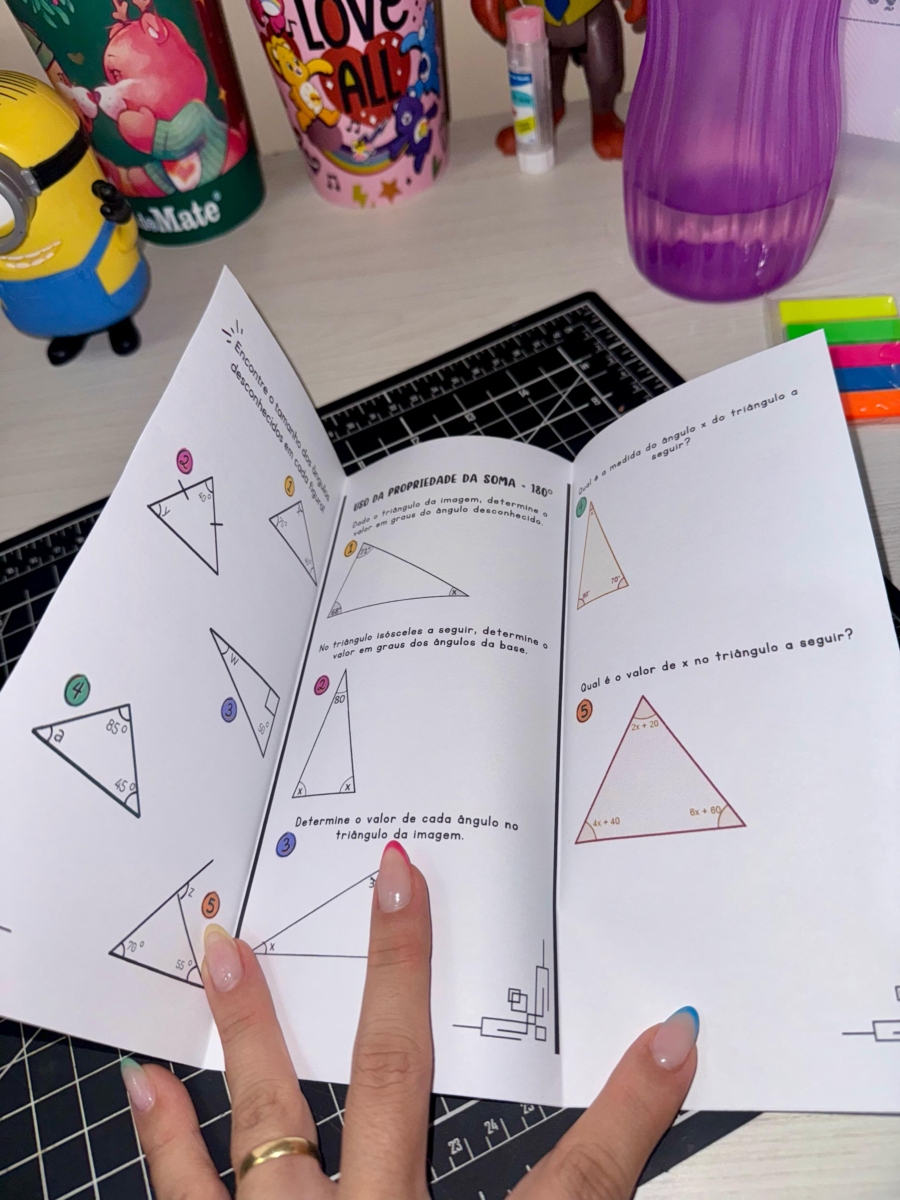 LOVE
ALL
Mate
Encontre o tamanho dos ângulos
desconhecidos em cada figura!
2
y
1
3
w
50°
4
a
85°
45°
5
z
70°
55°
USO DA PROPRIEDADE DA SOMA - 180°
Dado o triângulo da imagem, determine o
valor em graus do ângulo desconhecido.
1
x
No triângulo isósceles a seguir, determine o
valor em graus dos ângulos da base.
2
80
x
x
Determine o valor de cada ângulo no
triângulo da imagem.
3
3
x
Qual é a medida do ângulo x do triângulo a
seguir?
70°
Qual é o valor de x no triângulo a seguir?
5
2x + 20
4x + 40
6x + 60
23
24